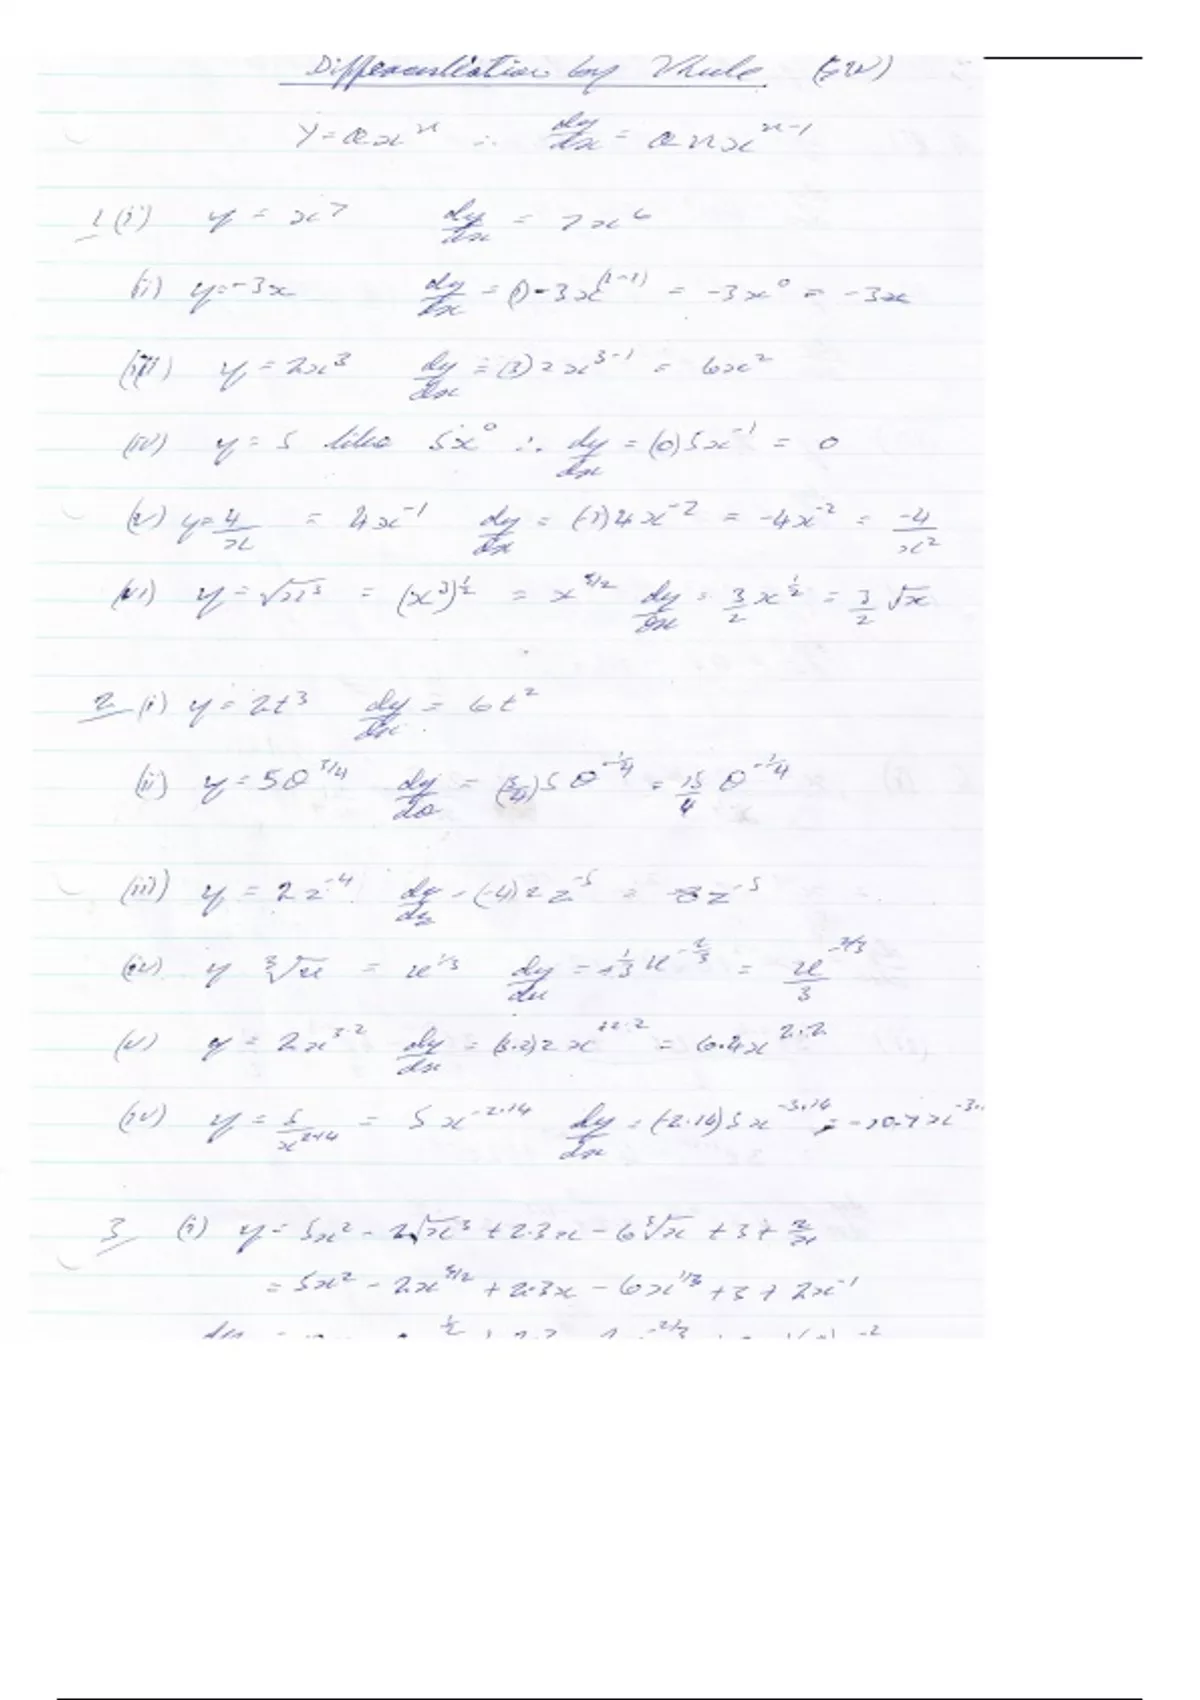 Differentiation by Rule (5.2)
y = axⁿ ∴ dy/dx = anxⁿ⁻¹
1 (i) y = x⁷ dy/dx = 7x⁶
(ii) y = -3x dy/dx = (1)-3x⁽¹⁻¹⁾ = -3x⁰ = -3x
(iii) y = 2x³ dy/dx = (3)2x³⁻¹ = 6x²
(iv) y = 5 like 5x⁰ ∴ dy/dx = (0)5x⁻¹ = 0
(v) y = 4/x = 4x⁻¹ dy/dx = (-1)4x⁻² = -4x⁻² = -4/x²
(vi) y = √x³ = (x³)^½ = x^3/2 dy/dx = 3/2 x^½ = 3/2 √x
2 (i) y = 2t³ dy/dx = 6t²
(ii) y = 5θ^3/4 dy/dθ = (3/4)5θ^-1/4 = 15/4 θ^-1/4
(iii) y = 2z⁻⁴ dy/dz = (-4)2z⁻⁵ = -8z⁻⁵
(iv) y ³√u = u^1/3 dy/du = 1/3 u^-2/3 = u^-2/3 / 3
(v) y = 2x^3.2 dy/dx = (3.2)2x^2.2 = 6.4x^2.2
(iv) y = 5/x^2.14 = 5x^-2.14 dy/dx = (-2.14)5x^-3.14 = -10.7x^-3.
3 (i) y = 5x² - 2√x³ + 2.3x - 6³√x + 3 + 2/x
= 5x² - 2x^3/2 + 2.3x - 6x^1/3 + 3 + 2x⁻¹